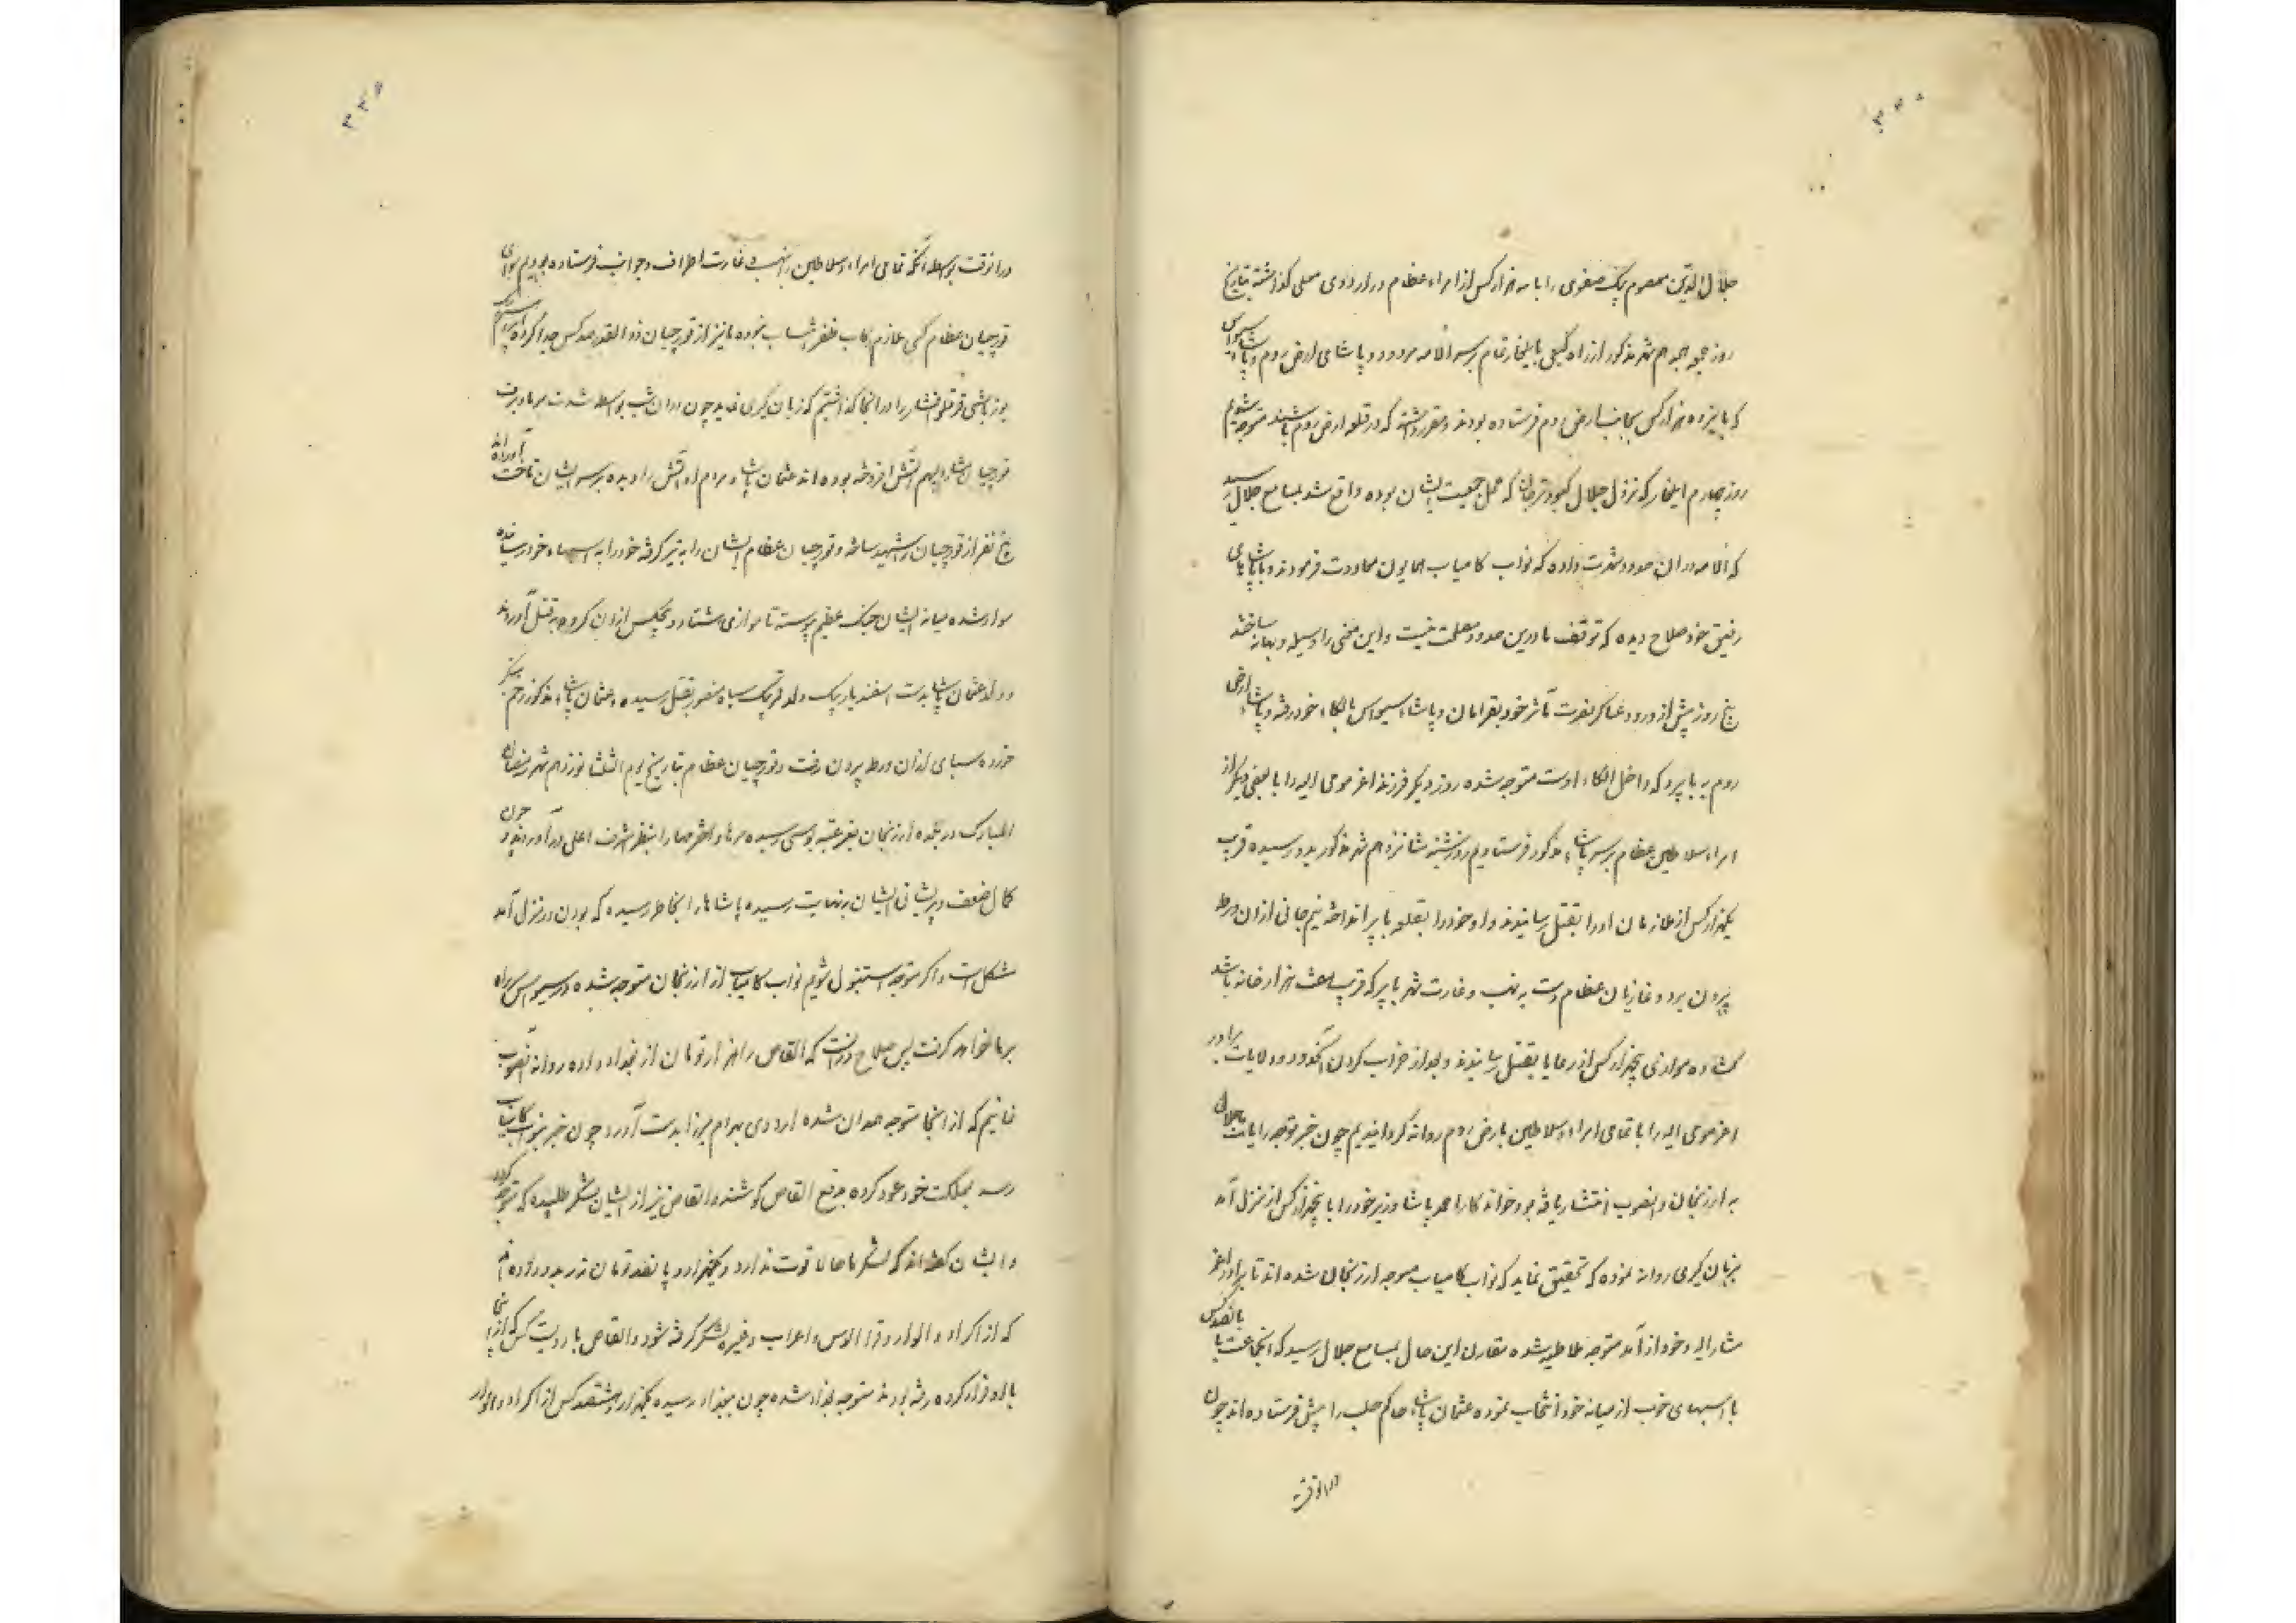 جلال الدین معصوم بیک صفوی را با سه هزار کس از امراء عظام در اردوی معلی گذاشته بتاریخ
روز جمعه شهر مذکور از راه کیفی بایلغار تمام بر سر الامه مردود و پاشای ارض روم و پاشاء سیواس
که با پانزده هزار کس بجانب ارض روم فرستاده بودند و مقرر داشته که در قلعه ارض روم باشند متوجه شویم
روز چهارم ایلغار که نزول جلال که محل جمعیت ایشان بوده واقع شد بمسامع جلال رسید
که الامه در ان حدود شهرت داده که نواب کامیاب همایون معاودت فرمودند و با پاشاهای
رفیق خود صلاح دیده که توقف ما درین حدود مصلحت نیست و این معنی را وسیله و بهانه ساخته
پنج روز پیش از ورود عساکر نصرت مآثر خود بقرامان و پاشاء سیواس بالکاء خود رفته و پاشاء ارض
روم به بابیرد که داخل الکاء اوست متوجه شده روز دیگر فرزند اعز مومی الیه را با بعضی دیگر از
امراء سلاطین عظام بر سر پاشاء مذکور فرستادیم روز شنبه شانزدهم شهر مذکور بدو رسیده قریب
یکهزار کس از ملازمان او را بقتل رسانیدند و او خود را بقلعه بابیر انداخته نیم جانی از ان ورطه
بیرون برد و غازیان عظام دست به نهب و غارت شهر بابیر که قریب هشت هزار خانه باشد
گشاده موازی پنجهزار کس از رعایا بقتل رسانیدند و بعد از خراب کردن آن حدود و ولایات برادر
اعز مومی الیه را با تمامی امراء و سلاطین بارض روم روانه گردانیدیم چون خبر توجه رایات جلال
به ارزنجان و انصوب انتشار یافته بود خواندکار احمد پاشا وزیر خود را با پنجهزار کس از منزل آمد
بزبان گیری روانه نموده که تحقیق نماید که نواب کامیاب متوجه ارزنجان شده اند تا برادر اعز
مشار الیه و خود از آمد متوجه ملاطیه شده مقارن این حال بمسامع جلال رسید که انجماعت با پانصد کس
با اسبهای خوب از میانه خود انتخاب نموده عثمان پاشاء حاکم حلب را پیش فرستاده اند چون
در انوقت
در انوقت بواسطه آنکه تمامی امراء و سلاطین را بنهب و غارت اطراف و جوانب فرستاده بودیم سوای
قورچیان عظام کسی ملازم رکاب ظفر انتساب نبوده ما نیز از قورچیان ذوالقدر صد کس جدا کرده
یوزباشی قرقلو افشار را در انجا گذاشتیم که زبان گیری نماید چون در ان شب بواسطه شدت سرما و برف
قورچیان مشار الیهم آتش افروخته بوده اند عثمان پاشا و مردم او آتش را دیده بر سر ایشان تاخت آورده اند
پنج نفر از قورچیان را شهید ساخته و قورچیان عظام ایشان را به تیر گرفته خود را به اسبهاء خود رسانیده
سوار شده میانه ایشان جنک عظیم پیوسته تا موازی هشتاد و پنج کس از ان گروه بقتل آوردند
و ولد عثمان پاشا بدست اسفندیار بیک ولد بیک سیاه منصور بقتل رسیده و عثمان پاشاء مذکور زخم منکر
خورده سپاهی از ان ورطه بیرون رفت و قورچیان عظام بتاریخ یوم الثلثا نوزدهم شهر رمضان
المبارک در بلده ارزنجان بعز عتبه بوسی رسیده سرها و اخترمها را بنظر اشرف اعلی در آوردند و چون
کمال ضعف و پریشانی ایشان بنهایت رسیده پاشاها را بخاطر رسیده که بودن در منزل آمد
مشکل است و اگر متوجه استنبول شویم نواب کامیاب از ارزنجان متوجه شده در سیواس سر راه
بر ما خواهد گرفت پس صلاح دانست که القاص را هزار تومان از بغداد داده روانه انصوب
نمائیم که از انجا متوجه همدان شده اردوی بهرام میرزا بدست آورد چون خبر بنواب کامیاب
رسد بمملکت خود عود کرده بدفع القاص کوشند و القاص نیز از ایشان لشکر طلبیده که متوجه گردد
و ایشان گفته اند که لشکر ما حالا قوت ندارد و یکهزار و پانصد تومان زر بدو داده اند
که از اکراد و الوار و قرا الوس و اعراب و غیره لشکر گرفته شود و القاص با دویست کس که از انجا
با او فرار کرده رفته بودند متوجه بغداد شده چون ببغداد رسیده یکهزار و هشتصد کس از اکراد و الوار